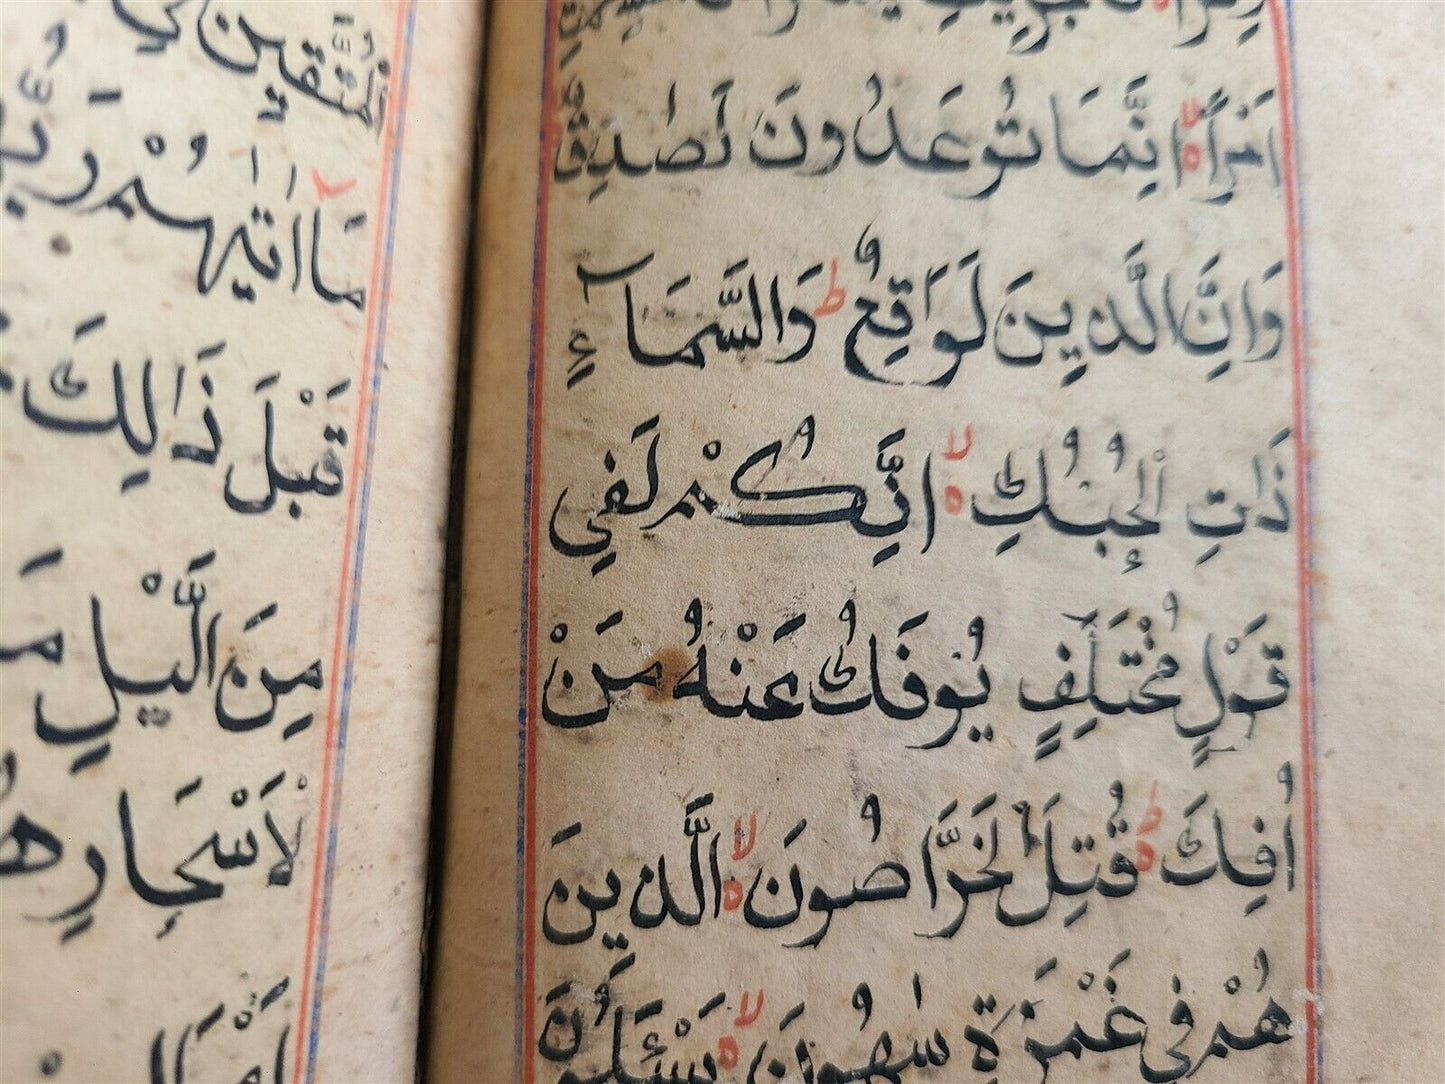 اَمْراً ۙ اِنَّمَا تُوعَدُونَ لَصٰدِقٌ
وَاِنَّ الَّدِينَ لَوَاقِعٌ ط وَالسَّمَآءِ
ذَاتِ الْحُبُكِ لا اِنَّكُمْ لَفِي
قَوْلٍ مُخْتَلِفٍ يُوفَكُ عَنْهُ مَنْ
اُفِكَ ط قُتِلَ الْخَرَّاصُونَ لا الَّذِينَ
هُمْ فِي غَمْرَةٍ سٰهُونَ لا يَسْئَلُونَ
لْمُتَّقِينَ فِي
مَا اٰتٰيهُمْ
قَبْلَ ذَٰلِكَ
مِنَ الَّيْلِ
لْاَسْحَارِ